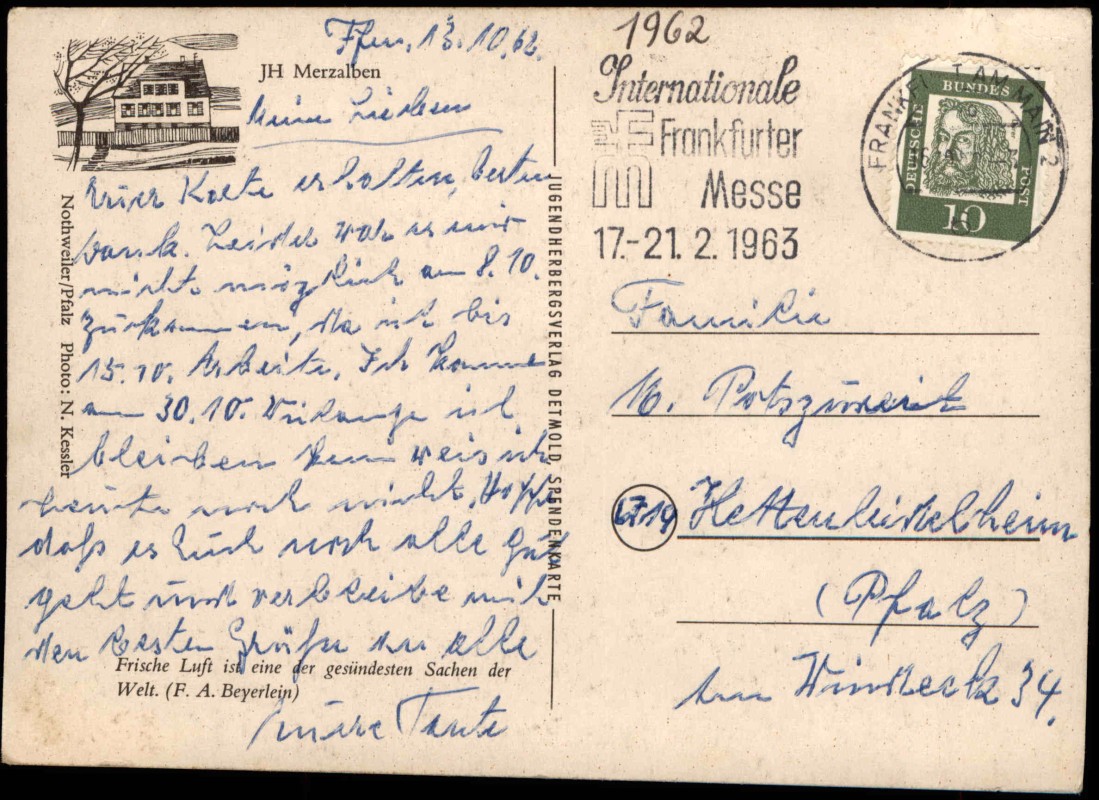 Ffm, 13.10.62.
JH Merzalben
Meine Lieben
Eurer Karte erhalten, besten
Dank. Leider war es mir
nicht möglich am 8.10.
zu kommen, da ich bis
15.10. Arbeite. Ich komme
am 30.10. Wielange ich
bleiben kann weis ich
heute noch nicht. Hoffe
daß es Euch noch alle Gut
geht und verbleibe mit
den besten Grüße an alle
Eure Tante
Frische Luft ist eine der gesündesten Sachen der
Welt. (F. A. Beyerlein)
Nothweiler/Pfalz Photo: N. Kessler
JUGENDHERBERGSVERLAG DETMOLD, SPENDENKARTE
1962
Internationale
Frankfurter
Messe
17.-21. 2. 1963
FRANKFURT AM MAIN 2
DEUTSCHE BUNDESPOST
10
Familie
Hettenleidelheim
(Pfalz)
Am Windeck 34.